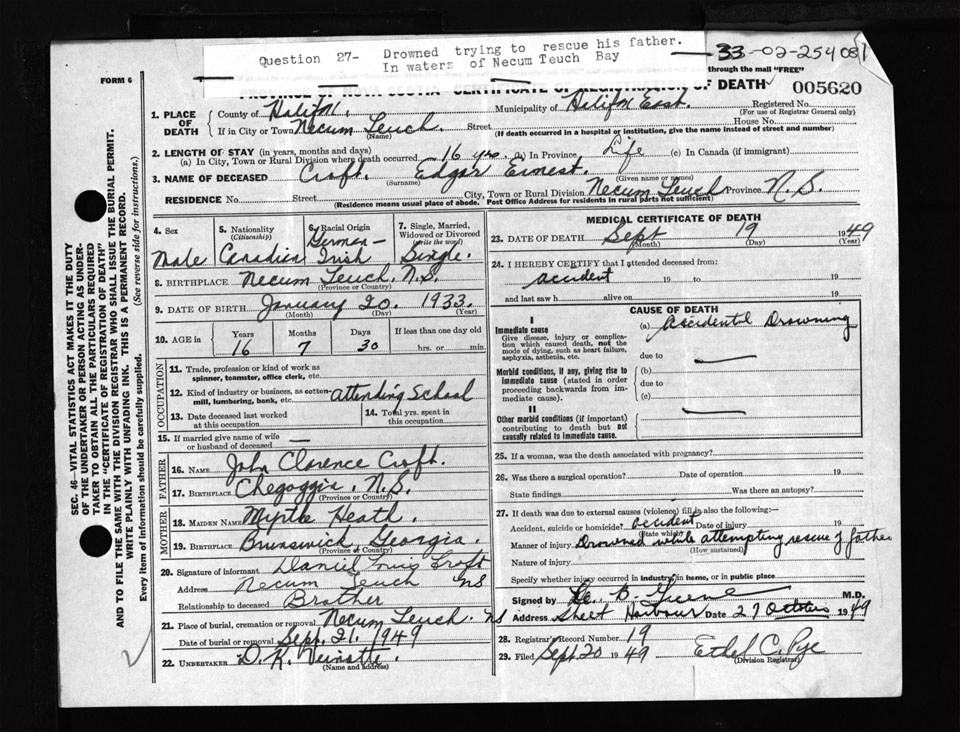 Question 27- Drowned trying to rescue his father.
In waters of Necum Teuch Bay
33-02-254081
through the mail "FREE"
FORM 6
PROVINCE OF NOVA SCOTIA - CERTIFICATE OF REGISTRATION OF DEATH 005620
1. PLACE OF DEATH County of Halifax. Municipality of Halifax East. Registered No.
(For use of Registrar General only)
If in City or Town Necum Teuch. Street House No.
(Name) (If death occurred in a hospital or institution, give the name instead of street and number)
2. LENGTH OF STAY (in years, months and days)
(a) In City, Town or Rural Division where death occurred 16 yrs. (b) In Province Life (c) In Canada (if immigrant)
3. NAME OF DECEASED Croft. Edgar Ernest.
(Surname) (Given name or names)
RESIDENCE No. Street City, Town or Rural Division Necum Teuch Province N.S.
(Residence means usual place of abode. Post Office Address for residents in rural parts not sufficient)
SEC. 46—VITAL STATISTICS ACT MAKES IT THE DUTY
OF THE UNDERTAKER OR PERSON ACTING AS UNDER-
TAKER TO OBTAIN ALL THE PARTICULARS REQUIRED
IN THE "CERTIFICATE OF REGISTRATION OF DEATH"
AND TO FILE THE SAME WITH THE DIVISION REGISTRAR WHO SHALL ISSUE THE BURIAL PERMIT.
WRITE PLAINLY WITH UNFADING INK. THIS IS A PERMANENT RECORD.
Every item of Information should be carefully supplied. (See reverse side for instructions.)
4. Sex Male
5. Nationality (Citizenship) Canadian
6. Racial Origin German - Irish
7. Single, Married, Widowed or Divorced (write the word) Single.
8. BIRTHPLACE Necum Teuch, N.S.
(Province or Country)
9. DATE OF BIRTH January 20. 1933.
(Month) (Day) (Year)
10. AGE in Years 16 Months 7 Days 30 If less than one day old hrs. or min.
OCCUPATION
11. Trade, profession or kind of work as
spinner, teamster, office clerk, etc.
12. Kind of industry or business, as cotton-
mill, lumbering, bank, etc. attending School
13. Date deceased last worked
at this occupation
14. Total yrs. spent in
this occupation
15. If married give name of wife
or husband of deceased —
FATHER
16. NAME John Clarence Croft.
17. BIRTHPLACE Chegoggin, N.S.
(Province or Country)
MOTHER
18. MAIDEN NAME Myrtle Heath.
19. BIRTHPLACE Brunswick, Georgia.
(Province or Country)
20. Signature of informant Daniel Louis Croft
Address Necum Teuch NS
Relationship to deceased Brother
21. Place of burial, cremation or removal Necum Teuch. NS
Date of burial or removal Sept. 21. 1949
22. UNDERTAKER
(Name and address)
MEDICAL CERTIFICATE OF DEATH
23. DATE OF DEATH Sept 19 1949
(Month) (Day) (Year)
24. I HEREBY CERTIFY that I attended deceased from:
accident 19 to 19
and last saw h alive on 19
CAUSE OF DEATH
I
Immediate cause (a) Accidental Drowning
Give disease, injury or complica-
tion which caused death, not the
mode of dying, such as heart failure,
asphyxia, asthenia, etc.
due to —
Morbid conditions, if any, giving rise to
immediate cause (stated in order
proceeding backwards from im-
mediate cause).
(b)
due to
(c)
II
Other morbid conditions (if important)
contributing to death but not
causally related to immediate cause.
25. If a woman, was the death associated with pregnancy?
26. Was there a surgical operation? Date of operation 19
State findings Was there an autopsy?
27. If death was due to external causes (violence) fill in also the following:—
Accident, suicide or homicide? accident Date of injury 19
(State which)
Manner of injury Drowned while attempting rescue of father
(How sustained)
Nature of injury
Specify whether injury occurred in industry, in home, or in public place
Signed by M.D.
Address Sheet Harbour Date 27 October 1949
28. Registrar's Record Number 19
29. Filed Sept 20 1949 Ethel C. Pye
(Division Registrar)